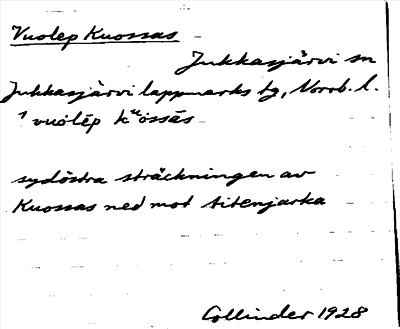 Vuolep Kuossas
Jukkasjärvi sn
Jukkasjärvi lappmarks tg, Norrb. l.
vuolēp kᵘossās
sydöstra sträckningen av
Kuossas ned mot titenjarka
Collinder 1928